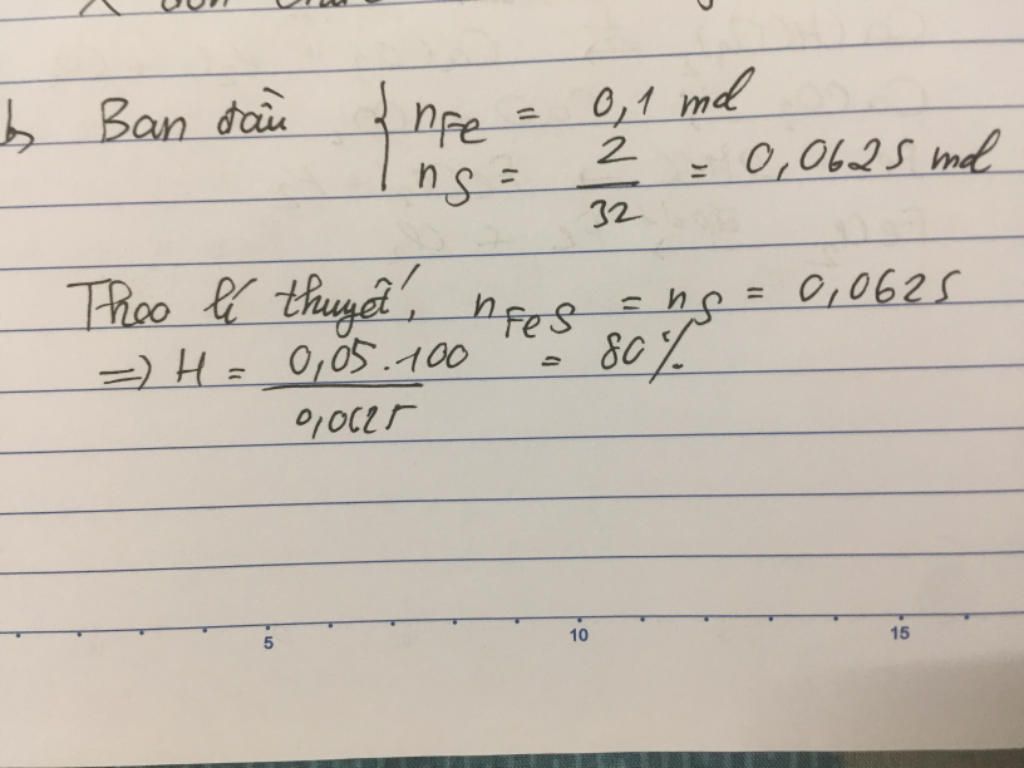 b, Ban đầu { nFe = 0,1 mol
nS = 2/32 = 0,0625 mol
Theo lí thuyết, nFeS = nS = 0,0625
=> H = 0,05.100/0,0625 = 80%
5 10 15